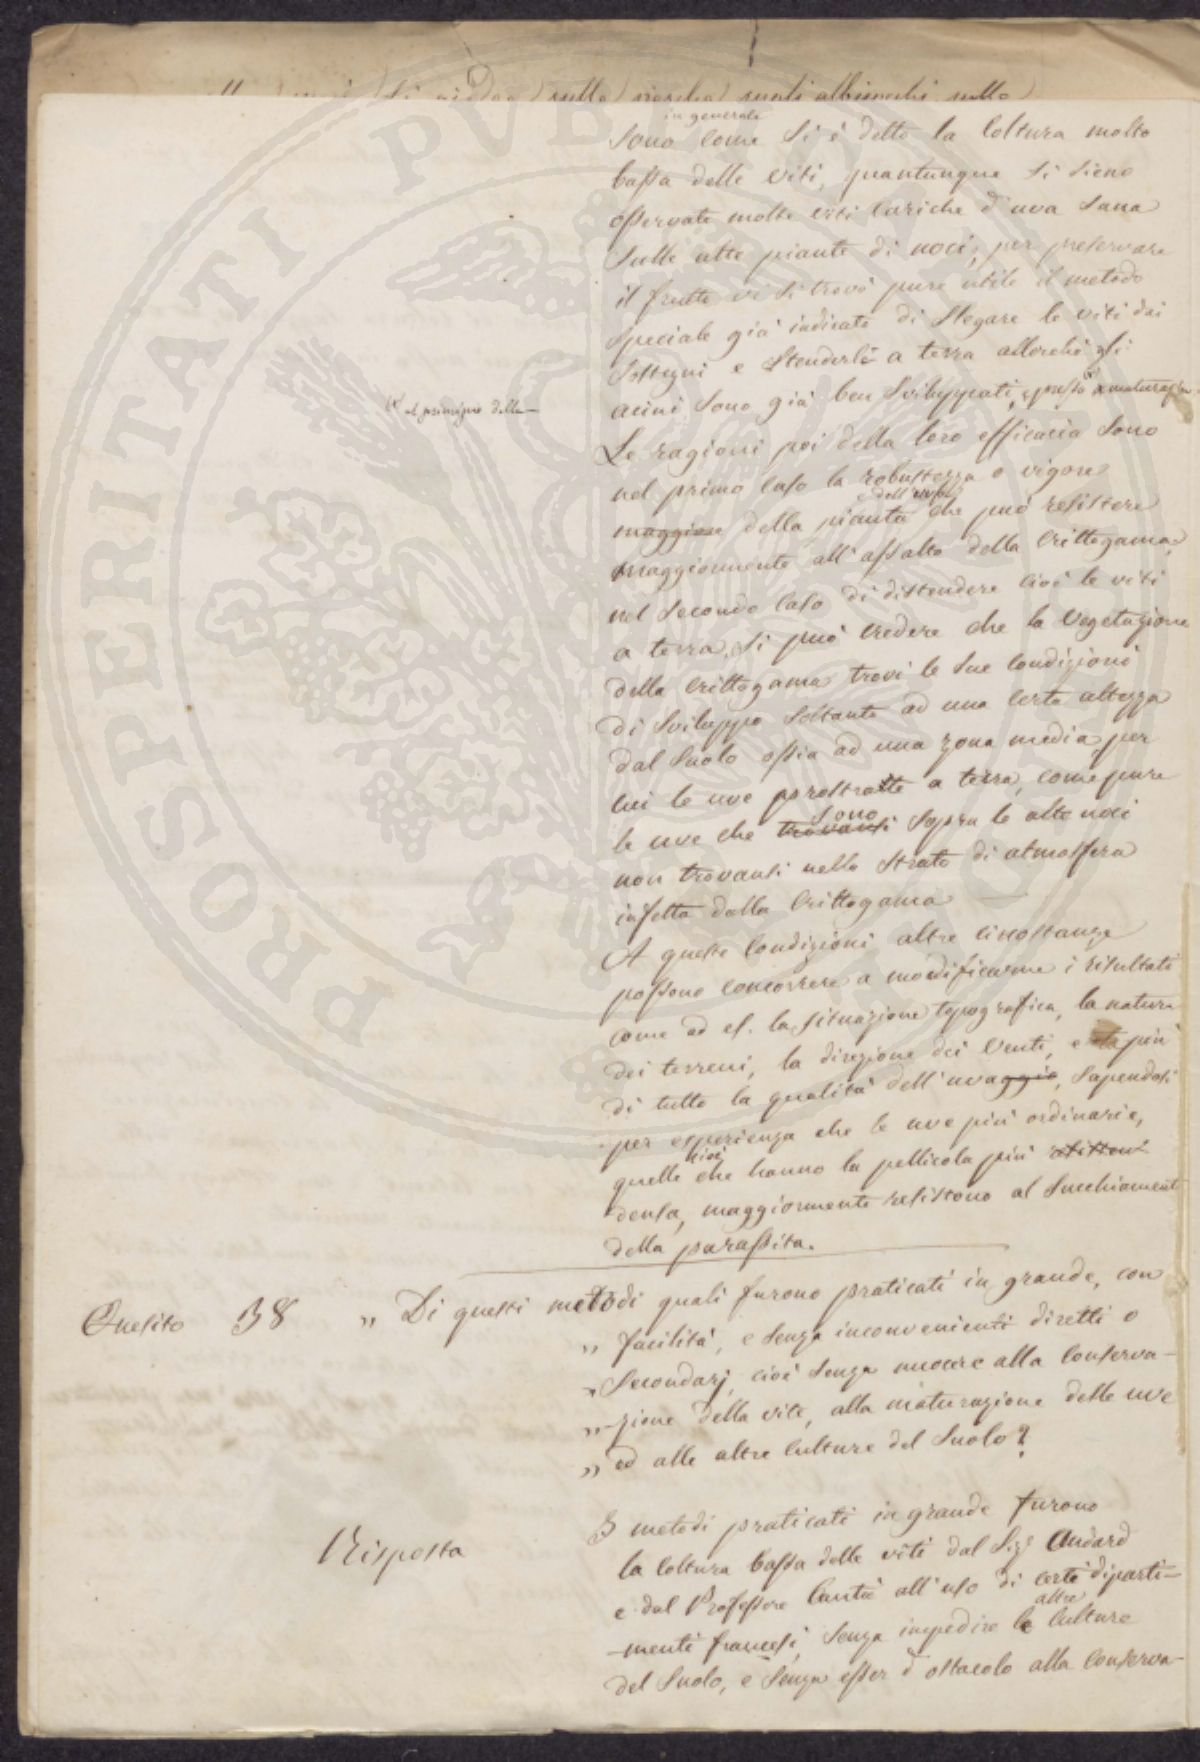 in generale
sono come si è detto la coltura molto
bassa delle viti, quantunque si sieno
osservate molte viti cariche d'uva sana
sulle alte piante di noci; per preservare
il frutto vi si trovò pure utile il metodo
speciale già indicato di slegare le viti dai
sostegni e stenderle a terra allorchè gli
acini sono già ben sviluppati, e presso a maturazione
al principio della
Le ragioni poi della loro efficacia sono
nel primo caso la robustezza o vigore
e dell'uva
maggiore della pianta che può resistere
maggiormente all'assalto della crittogama,
nel secondo caso di distendere cioè le viti
a terra, si può credere che la vegetazione
della crittogama trovi le sue condizioni
di sviluppo soltanto ad una certa altezza
dal suolo ossia ad una zona media, per
cui le uve prostratte a terra, come pure
sono
le uve che trovansi sopra le alte noci
non trovansi nello strato di atmosfera
infetta dalla crittogama —
A queste condizioni altre circostanze
possono concorrere a modificarne i risultati
come ad es. la situazione topografica, la natura
dei terreni, la direzione dei venti, e più
di tutto la qualità dell'uvaggio, sapendosi
per esperienza che le uve più ordinarie,
cioè
quelle che hanno la pellicola più resistente
densa, maggiormente resistono al succhiament
della parassita.
Quesito 38 „ Di questi metodi quali furono praticati in grande, con
„ facilità, e senza inconvenienti diretti o
„ secondarj, cioè senza nuocere alla conserva-
„ zione della vite, alla maturazione delle uve
„ ed alle altre culture del suolo?
Risposta
I metodi praticati in grande furono
la coltura bassa delle viti dal Sigr Audard
e dal Professore Cantù all'uso di certi diparti-
altre
-menti francesi, senza impedire le culture
del suolo, e senza esser d'ostacolo alla conserva-
PROSPERITATI PUBLICAE